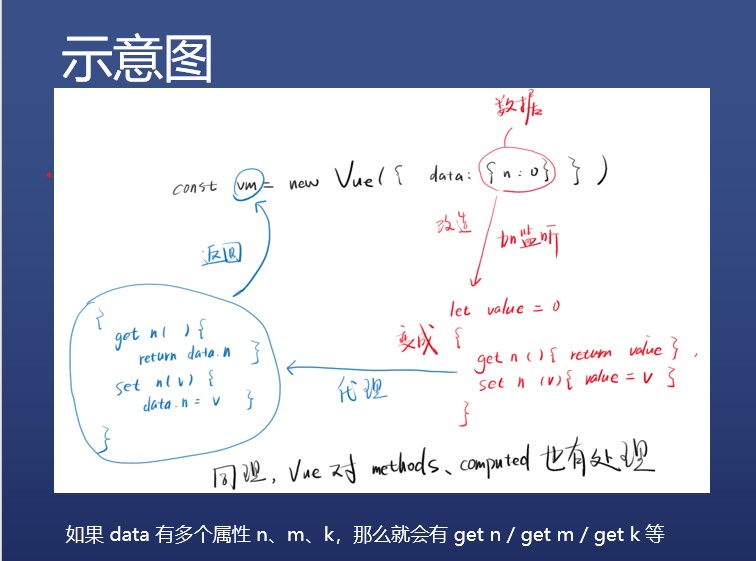 示意图
数据
const vm = new Vue({ data: {n:0} })
改造
加监听
返回
let value = 0
变成
{
get n(){ return value },
set n(v){ value = v }
}
代理
{
get n( ){
return data.n }
set n(v) {
data.n = v }
}
同理，Vue 对 methods、computed 也有处理
如果 data 有多个属性 n、m、k，那么就会有 get n / get m / get k 等